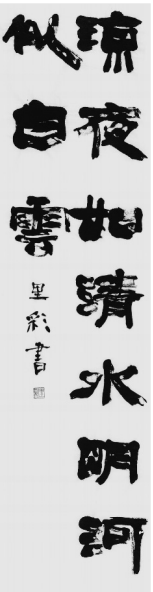 涼夜如清水明河
似白雲
里彩書